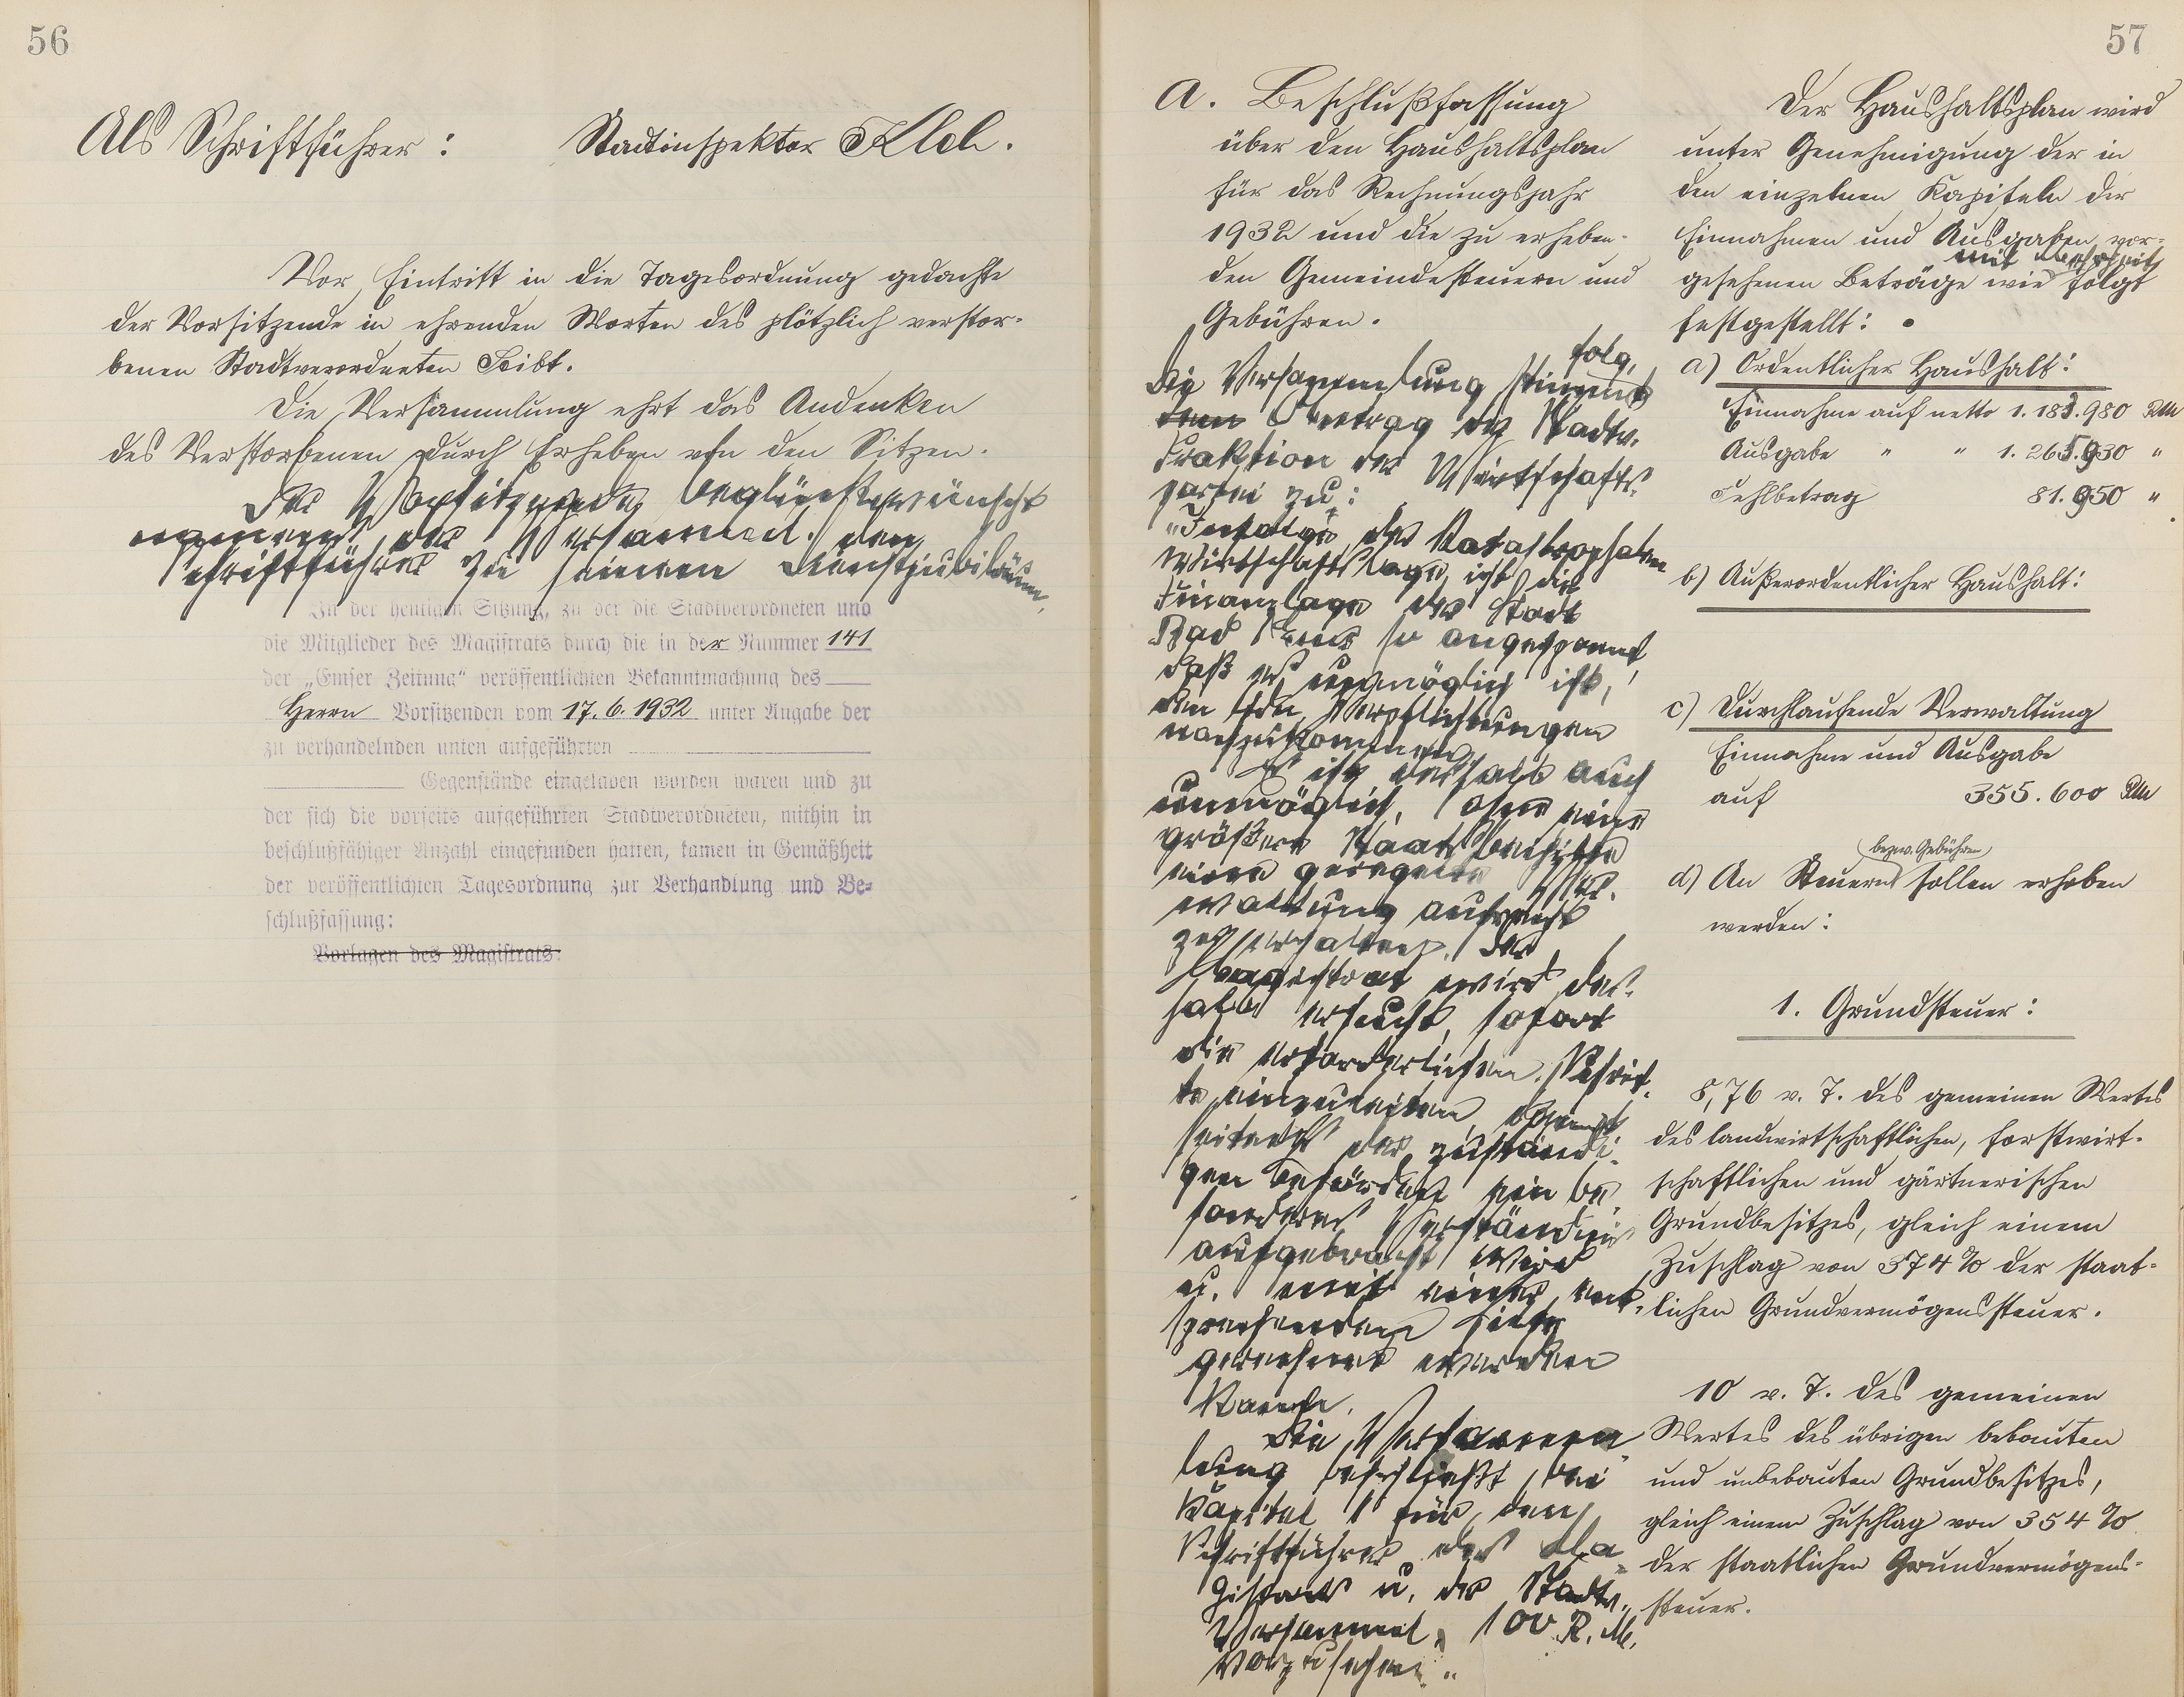 56
Als Schriftführer: Stadtinspektor Kleb.
Vor Eintritt in die Tagesordnung gedachte
der Vorsitzende in ehrenden Worten des plötzlich verstor-
benen Stadtverordneten Seibt.
Die Versammlung ehrt das Andenken
des Verstorbenen durch Erheben von den Sitzen.
Der Vorsitzende beglückwünscht
namens der Versamml. den
Schriftführer zu seinem Dienstjubiläum.
In der heutigen Sitzung, zu der die Stadtverordneten und
die Mitglieder des Magistrats durch die in der Nummer 141
der „Emser Zeitung“ veröffentlichten Bekanntmachung des
Herrn Vorsitzenden vom 17.6.1932 unter Angabe der
zu verhandelnden unten aufgeführten
Gegenstände eingeladen worden waren und zu
der sich die vorseits aufgeführten Stadtverordneten, mithin in
beschlußfähiger Anzahl eingefunden hatten, kamen in Gemäßheit
der veröffentlichten Tagesordnung zur Verhandlung und Be-
schlußfassung:
Vorlagen des Magistrats:
57
A. Beschlußfassung
über den Haushaltsplan
für das Rechnungsjahr
1932 und die zu erheben-
den Gemeindesteuern und
Gebühren.
folg.
Die Versammlung stimmt
dem Antrag der Stadtv.
Fraktion der Wirtschafts-
partei zu:
„Infolge der katastrophalen
Wirtschaftslage ist die
Finanzlage der Stadt
Bad Ems so angespannt,
daß es unmöglich ist,
den Verpflichtungen
nachzukommen.
Es ist deshalb auch
unmöglich, ohne eine
größere Staatsbeihilfe
eine geregelte Ver-
waltung aufrecht
zu erhalten. Der
Magistrat wird des-
halb ersucht, sofort
die erforderlichen Schrit-
te einzuleiten, damit
seitens der zuständi-
gen Behörden ein be-
sonderes Verständnis
aufgebracht wird
u. mit einer ent-
sprechenden Hilfe
gerechnet werden
kann.
Die Versamm-
lung beschließt, bei
Kapitel 1 für den
Schriftführer des Ma-
gistrats u. der Stadtv.
Versamml. 100 R.M.
vorzusehen.“
Der Haushaltsplan wird
unter Genehmigung der in
den einzelnen Kapiteln der
Einnahmen und Ausgaben vor-
mit
gesehenen Beträge wie folgt
festgestellt:
a) Ordentlicher Haushalt:
Einnahme auf netto 1.183.980 RM
Ausgabe " " 1.265.930 "
Fehlbetrag 81.950 "
b) Außerordentlicher Haushalt:
c) Durchlaufende Verwaltung
Einnahme und Ausgabe
auf 355.600 RM
bezw. Gebühren
d) An Steuern sollen erhoben
werden:
1. Grundsteuer:
8,76 v. T. des gemeinen Wertes
des landwirtschaftlichen, forstwirt-
schaftlichen und gärtnerischen
Grundbesitzes, gleich einem
Zuschlag von 374 % der staat-
lichen Grundvermögenssteuer.
10 v. T. des gemeinen
Wertes des übrigen bebauten
und unbebauten Grundbesitzes,
gleich einem Zuschlag von 354 %
der staatlichen Grundvermögens-
steuer.